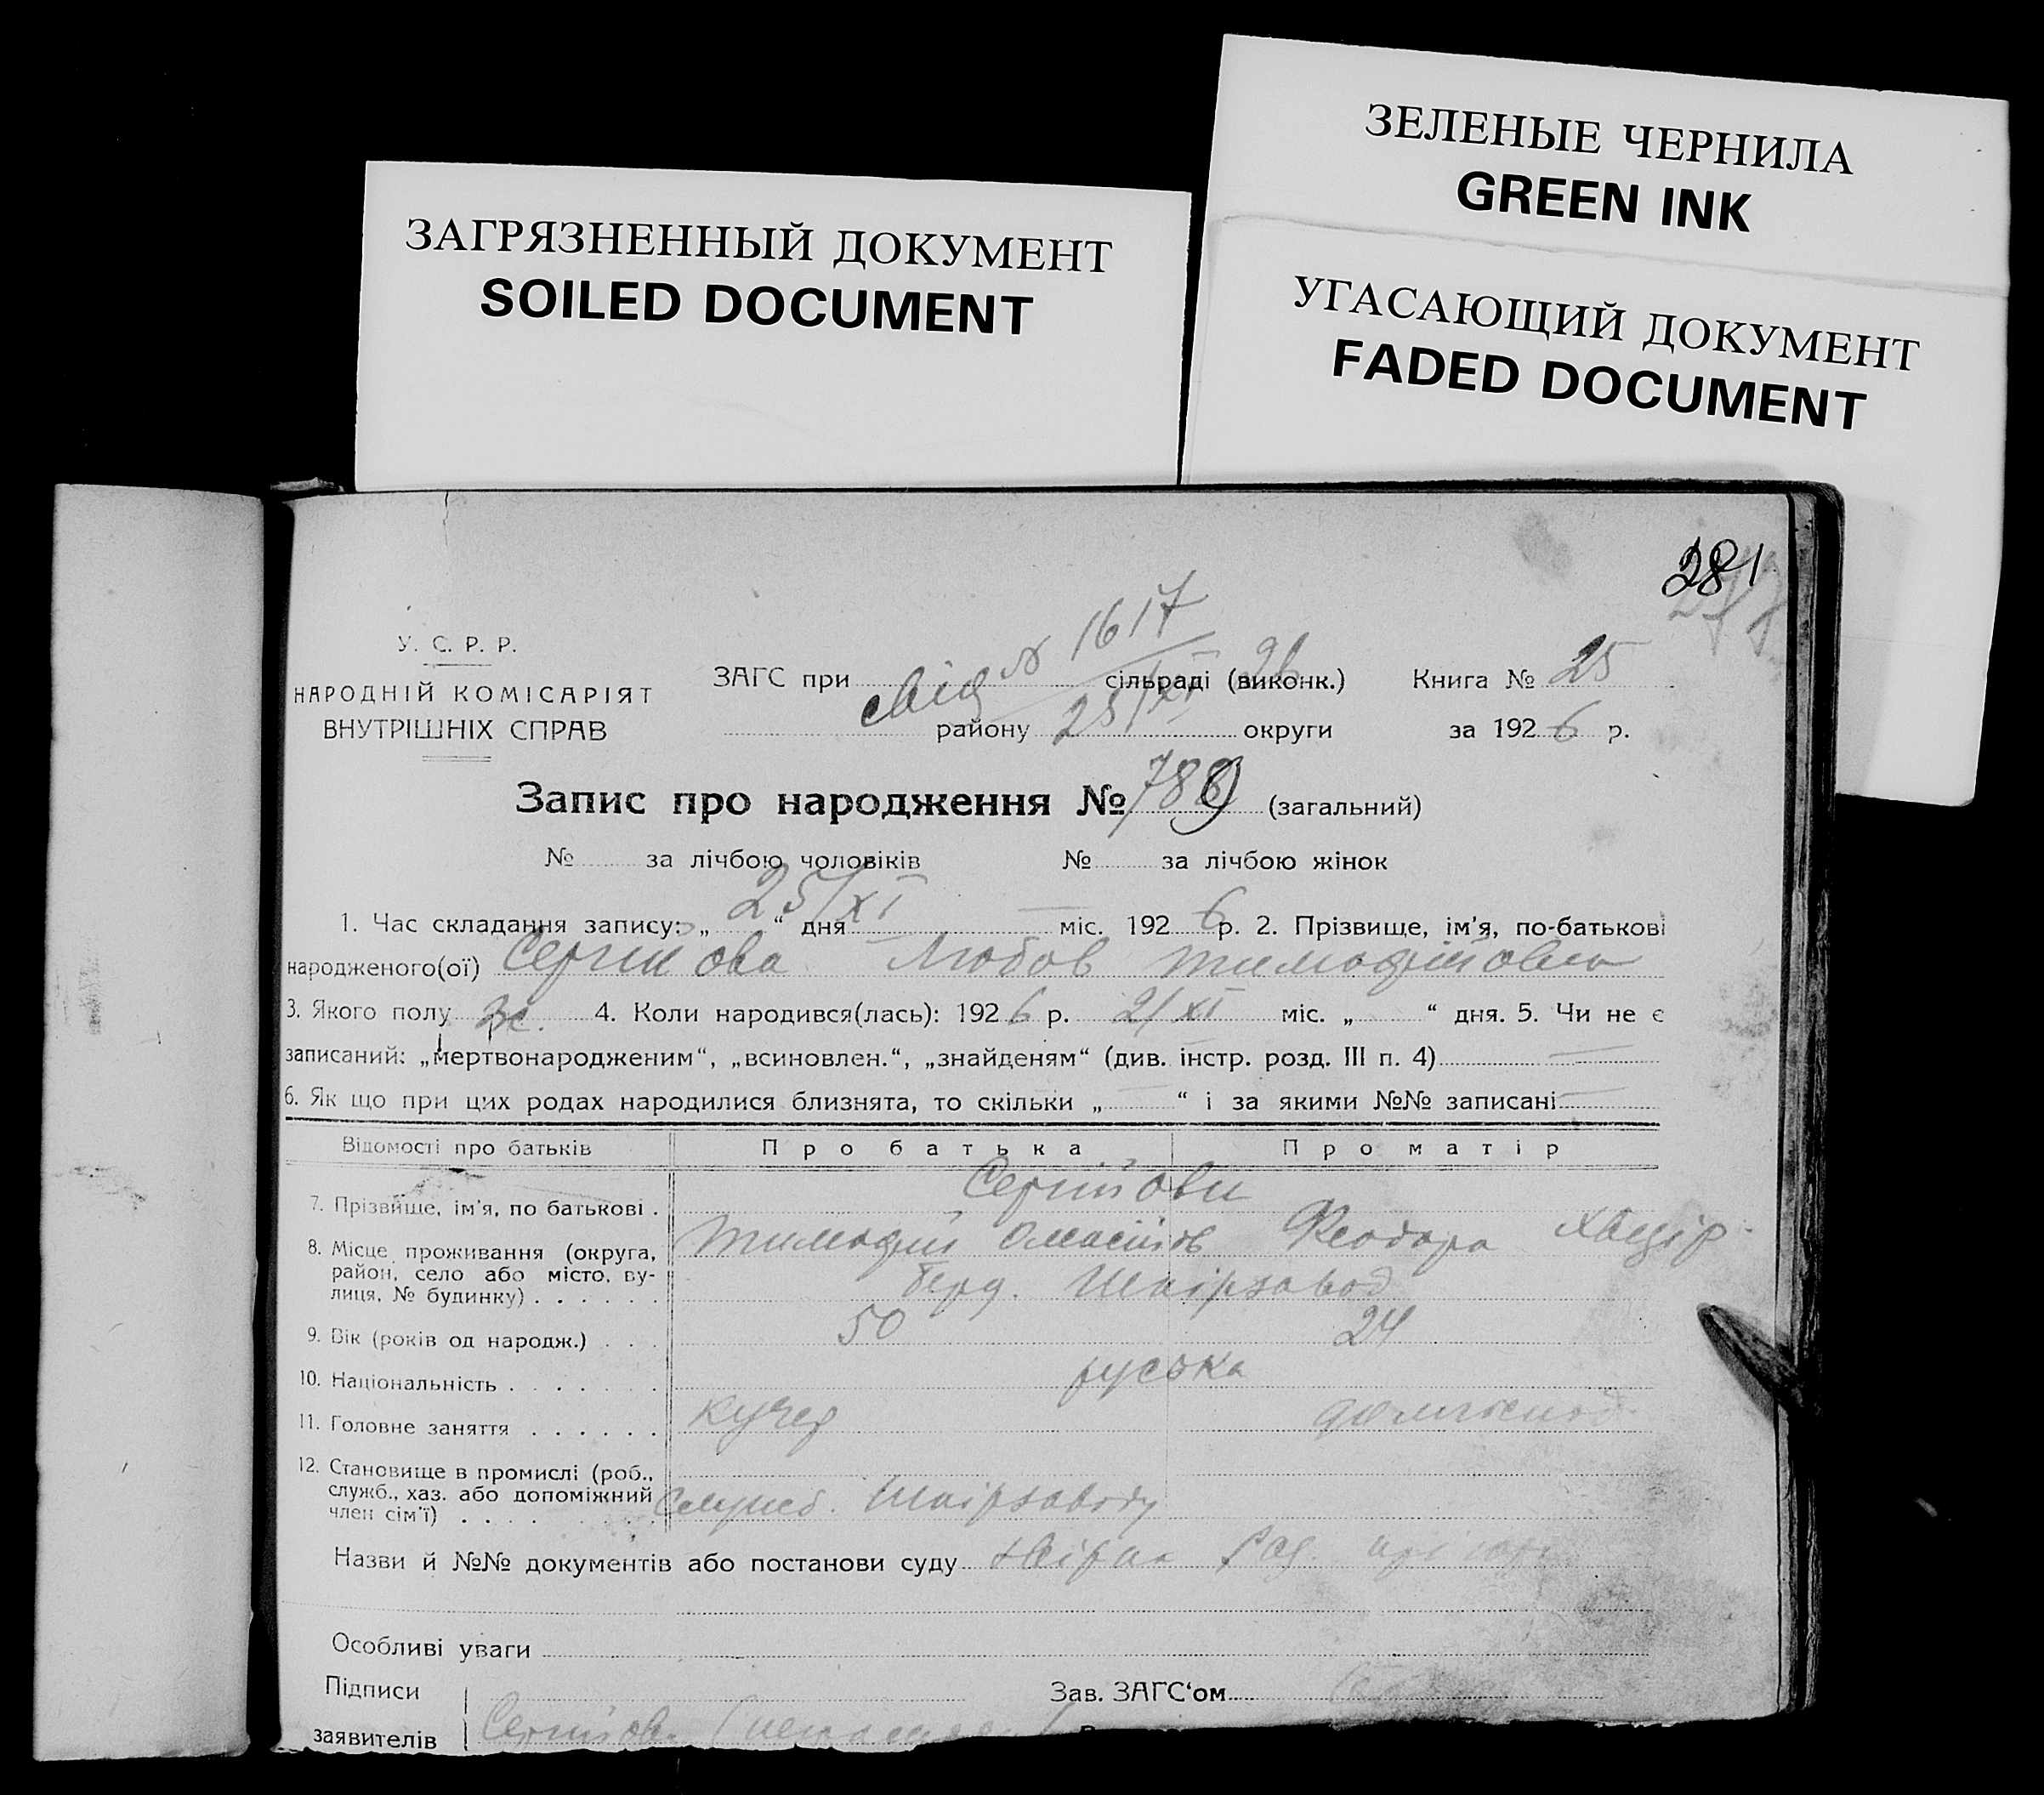 ЗЕЛЕНЫЕ ЧЕРНИЛА
GREEN INK
ЗАГРЯЗНЕННЫЙ ДОКУМЕНТ
SOILED DOCUMENT
УГАСАЮЩИЙ ДОКУМЕНТ
FADED DOCUMENT
281
У. С. Р. Р.
НАРОДНІЙ КОМІСАРІЯТ
ВНУТРІШНІХ СПРАВ
свід № 1617
25/XI 26
ЗАГС при сільраді (виконк.) Книга № 25
району округи за 1926 р.
Запис про народження № 789 (загальний)
№ за лічбою чоловіків № за лічбою жінок
1. Час складання запису: „ 25/XI “ дня — міс. 1926 р. 2. Прізвище, ім'я, по-батькові
народженого(ої) Сергійова Любов Тимофійовна
3. Якого полу ж. 4. Коли народився(лась): 1926 р. 21/XI міс. „ “ дня. 5. Чи не є
записаний: „мертвонародженим“, „всиновлен.“, „знайденям“ (див. інстр. розд. III п. 4) —
6. Як що при цих родах народилися близнята, то скільки „ — “ і за якими №№ записані —
Відомості про батьків Про батька Про матір
7. Прізвище, ім'я, по батькові . Сергійови
Тимофій Феодора
8. Місце проживання (округа, район, село або місто, ву-лиця, № будинку) . . . . . . Берд. Шкірзавод
9. Вік (років од народж.) . . . 50 24
10. Національність . . . . . . . руська
11. Головне заняття . . . . . . кучер домгоспод.
12. Становище в промислі (роб., служб., хаз. або допоміжний член сім'ї) . . . . Служб. Шкірзаводу
Назви й №№ документів або постанови суду
Особливі уваги
Підписи Зав. ЗАГС‘ом
заявителів Сергійов